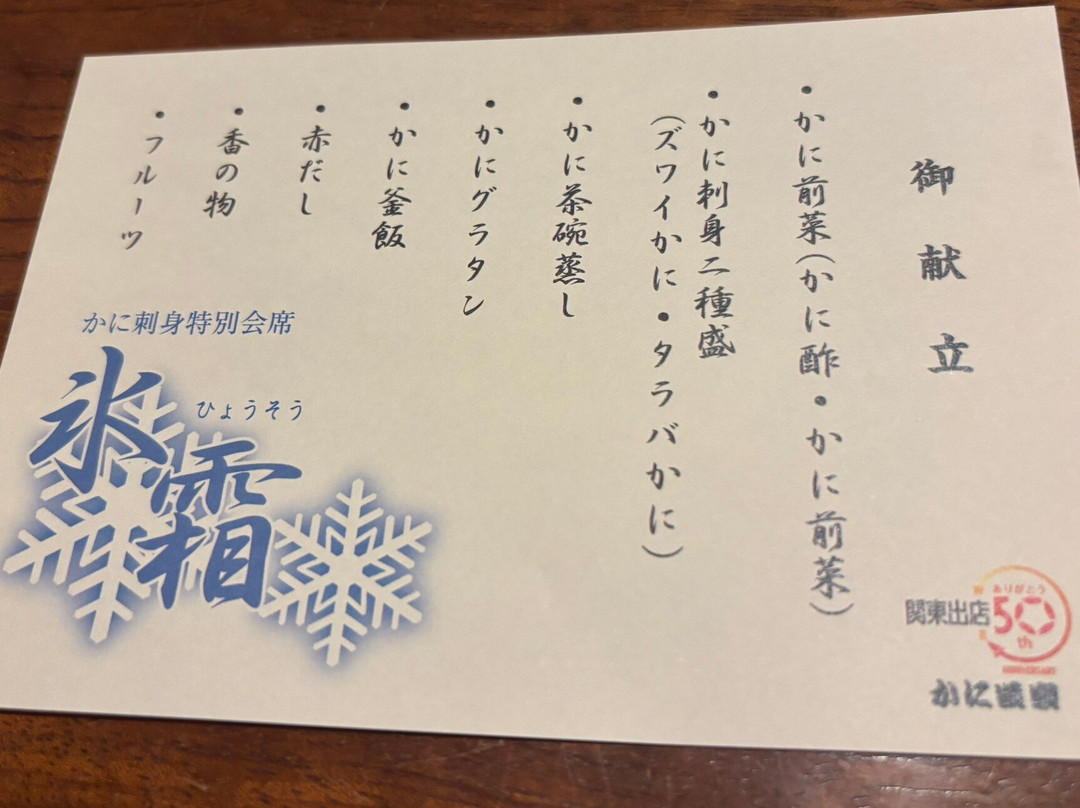 御献立
・かに前菜(かに酢・かに前菜)
・かに刺身二種盛
(ズワイかに・タラバかに)
・かに茶碗蒸し
・かにグラタン
・かに釜飯
・赤だし
・香の物
・フルーツ
かに刺身特別会席
ひょうそう
氷霜
ありがとう
関東出店
50
th
ANNIVERSARY
かに